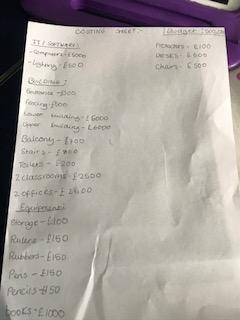 COSTING SHEET:-
Budget:
IT / SOFTWARE:
-Computers - £5000
-Lighting - £500
BUILDING:
Entrance - £500
Fencing - £500
Lower building - £6000
Upper building - £6000
Balcony - £700
Stairs - £800
Toilets - £200
2 classrooms - £2500
2 offices - £
Equipment:
Storage - £100
Rulers - £150
Rubbers - £150
Pens - £150
Pencils - £150
books - £1000
Projectors - £100
DESKS - £600
Chairs - £500